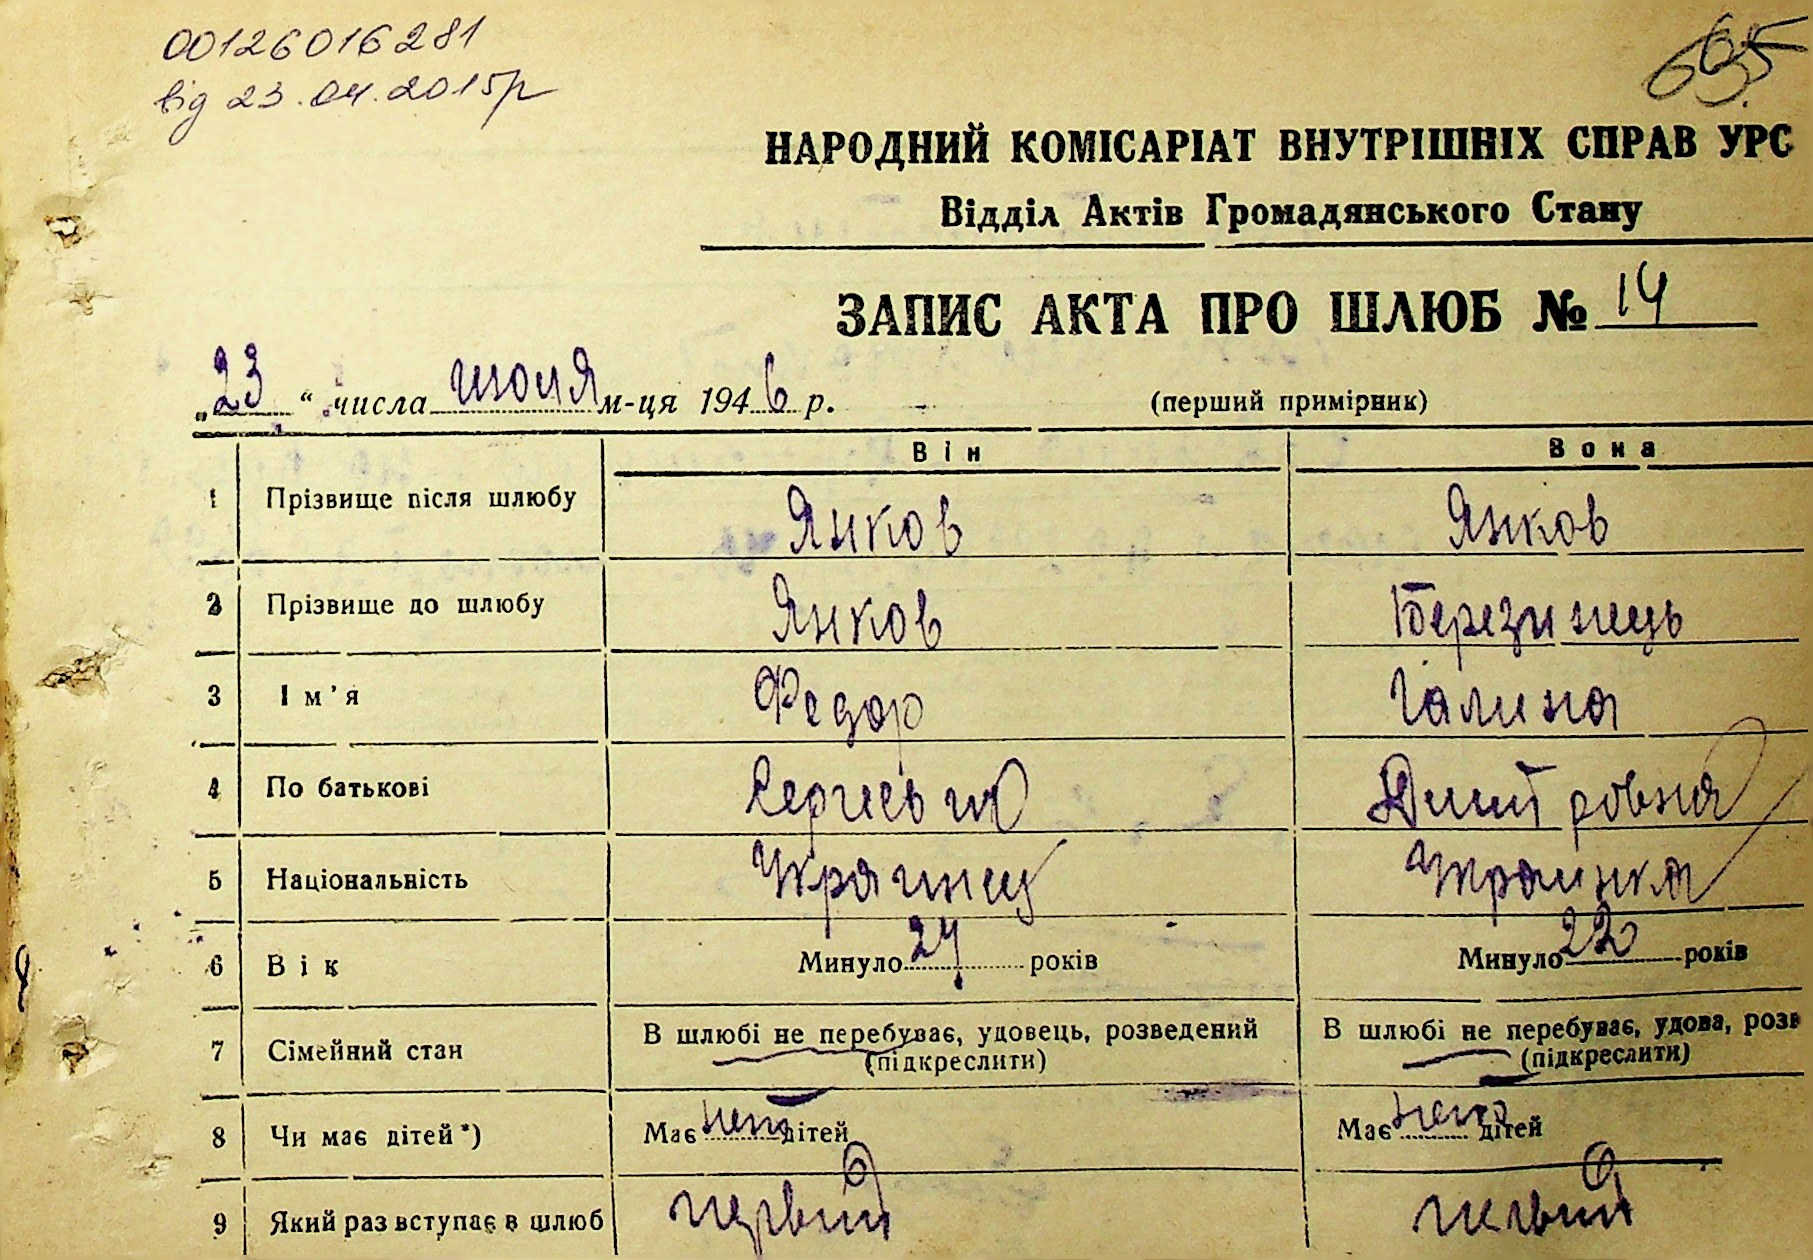 00126016281
від 23.04.2015р
НАРОДНИЙ КОМІСАРІАТ ВНУТРІШНІХ СПРАВ УРС
Відділ Актів Громадянського Стану
ЗАПИС АКТА ПРО ШЛЮБ № 14
„23“ числа июля м-ця 1946 р. (перший примірник)
Він Вона
1 Прізвище після шлюбу Янков Янков
2 Прізвище до шлюбу Янков Березинець
3 Ім'я Федор Галина
4 По батькові Сергеевич Дмитровна
5 Національність Украинец Украинка
6 Вік Минуло 24 років Минуло 22 років
7 Сімейний стан В шлюбі не перебуває, удовець, розведений В шлюбі не перебуває, удова, розв
(підкреслити) (підкреслити)
8 Чи має дітей*) Має нет дітей Має нет дітей
9 Який раз вступає в шлюб первый первый